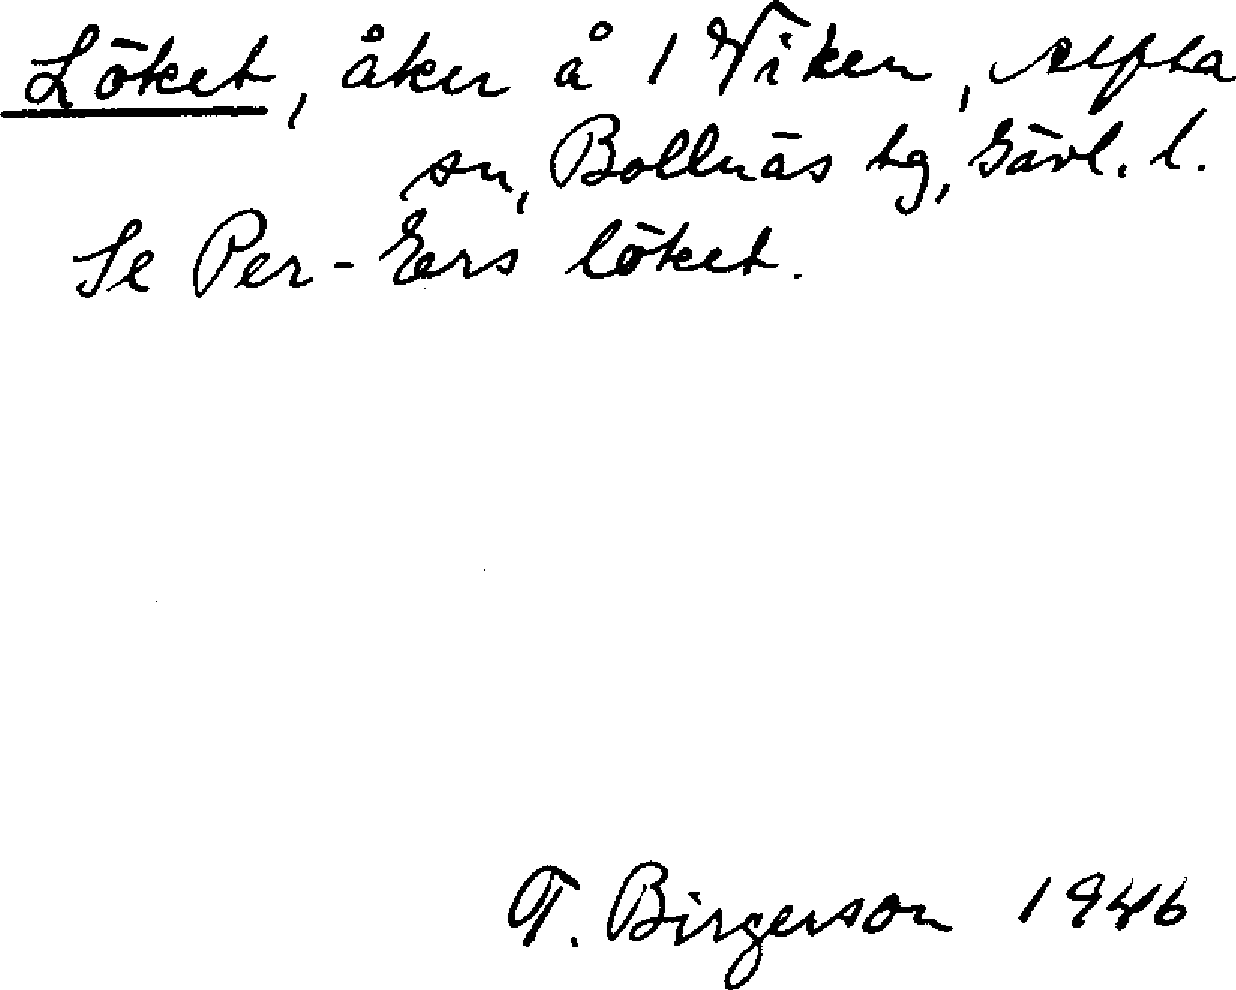 Löket, åker å 1 Viken, Alfta
sn, Bollnäs tg, Gävl. l.
Se Per-Ers löket.
T. Birgerson 1946